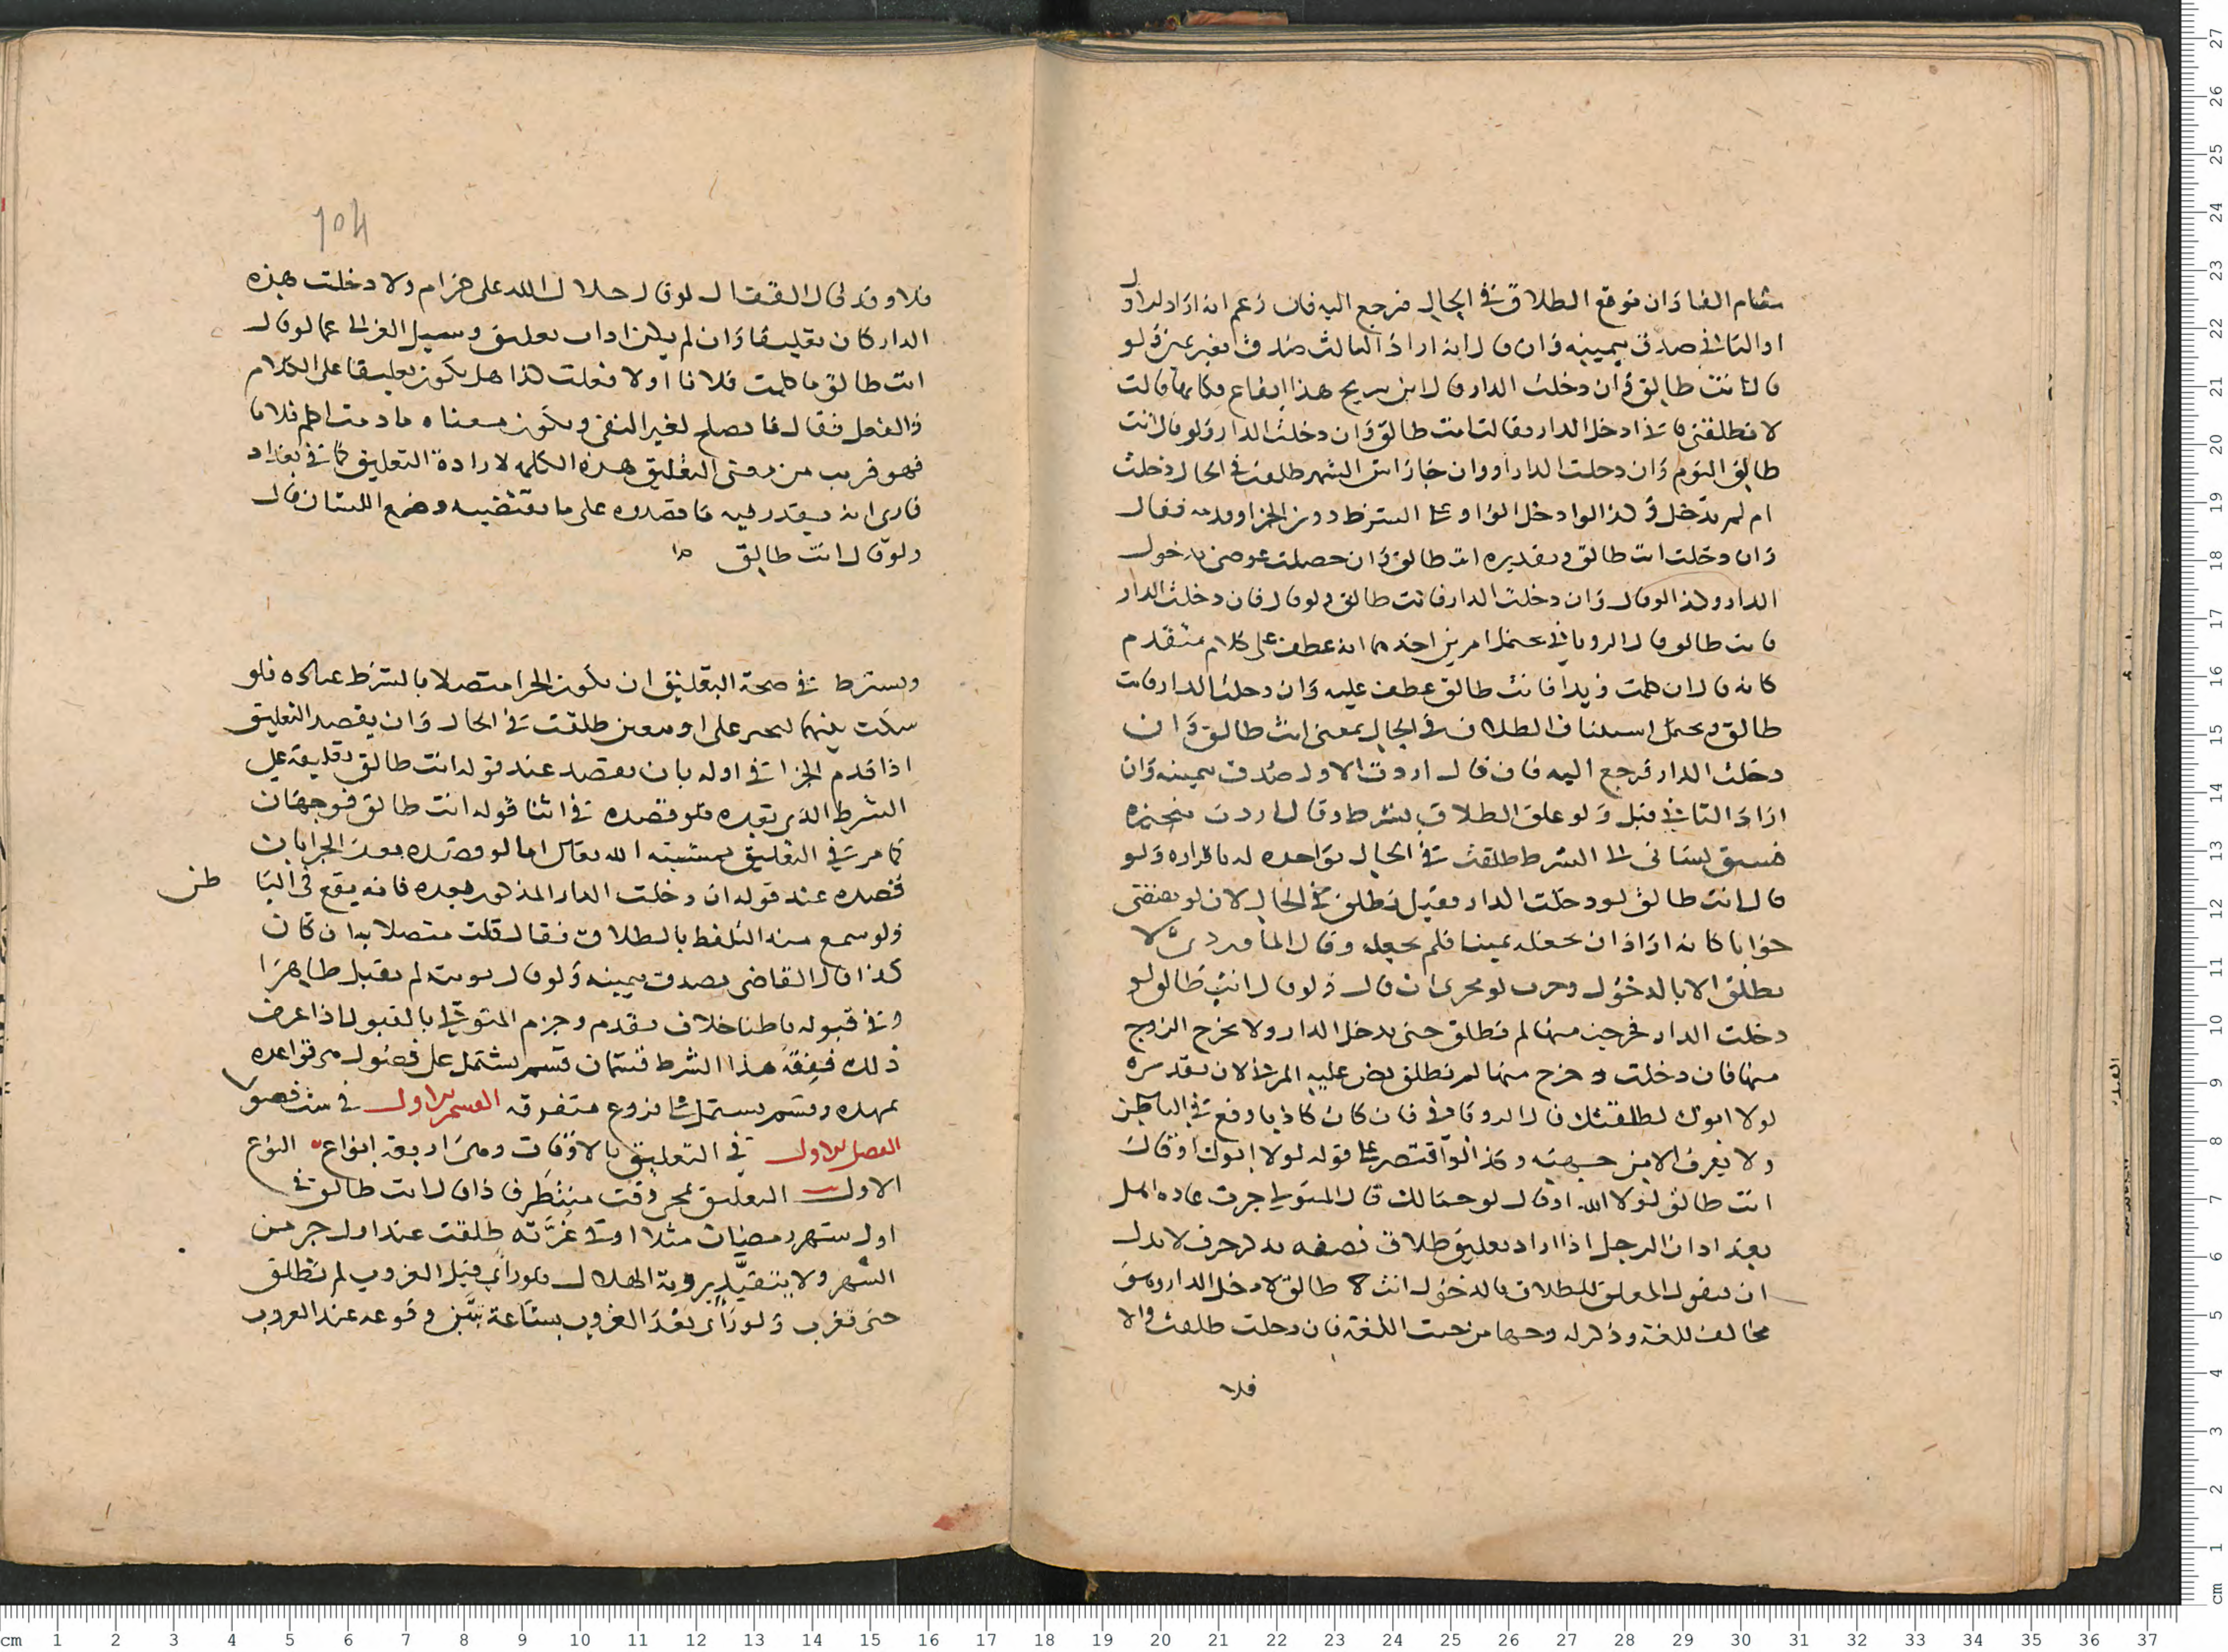 مقام الفا وان توقع الطلاق في الحال فرجع اليه فان زعم انه اراد الاول
او الثاني صدق بيمينه وان قال انه اراد الثالث صدق بغير يمين ولو
قال انت طالق وان دخلت الدار قال ابن سريج هذا ايقاع فكانها قالت
لا تطلقني فاني ادخل الدار فقالت انت طالق وان دخلت الدار ولو قال انت
طالق اليوم وان دخلت الدار او وان جا راس الشهر طلقت في الحال دخلت
ام لم تدخل وكذا لو ادخل الواو على الشرط دون الجزا وقدمه فقال
وان دخلت انت طالق وتقديره انت طالق وان حصلت عوضي بدخول
الدار وكذا لو قال وان دخلت الدار فانت طالق ولو قال فان دخلت الدار
فانت طالق قال الروياني يحتمل امرين احدهما انه عطف على كلام متقدم
كانه قال ان كلمت زيدا فانت طالق عطف عليه وان دخلت الدار فانت
طالق ويحتمل استئناف الطلاق في الحال بمعنى انت طالق وان
دخلت الدار فرجع اليه فان قال اردت الاول صدق بيمينه وان
اراد الثاني قبل ولو علق الطلاق بشرط وقال اردت تنجيزه
فسبق لساني الى الشرط طلقت في الحال يؤاخذه له باقراره ولو
قال انت طالق لو دخلت الدار فقيل تطلق في الحال لان لو تقتضي
جوابا كانه اراد ان يجعله يمينا فلم يجعله وقال الماوردي لا
تطلق الا بالدخول وجرت لو مجرى ان قال ولو قال انت طالق لو
دخلت الدار فخرجت منها لم تطلق حتى يدخل الدار ولا يخرج الزوج
منها فان دخلت وخرج منها لم تطلق نص عليه المزني لان تقديره
لولا ابوك لطلقتك قال الروياني فان كان كاذبا وقع في الباطن
ولا يعرف الا من جهته وكذا لو اقتصر على قوله لولا ابوك او قال
انت طالق لولا الله او قال لولا جمالك قال المتولي جرت عادة اهل
بغداد ان الرجل اذا اراد تعليق طلاق نصفه بدل حرف لا بدل
ان فيقول المعلق للطلاق بالدخول انت لا طالق لا دخل الدار وهو
مخالف للغة وذكر له وجها من حيث اللغة فان دخلت طلقت والا
فلا
104
فلا وقد قال القفال لو قال حلال الله علي حرام ولا دخلت هذه
الدار كان تعليقا وان لم يكن ادات تعليق وسئل الغزالي عما لو قال
انت طالق ما كلمت فلانا او لا فعلت كذا هل يكون تعليقا على الكلام
والفعل فقال ما تصلح لغير النفي ويكون معناه ما دمت اكلم فلانا
فهو قريب من معنى التعليق هذه الكلمة لارادة التعليق كما في بغداد
فارى انه يقدر فيه ما قصدوه على ما يقتضيه وضع اللسان قال
ولو قال انت طالق
ويشترط في صحة التعليق ان يكون الجزا متصلا بالشرط فلو
سكت بينهما طلقت في الحال وان يقصد التعليق
اذا قدم الجزا في اوله بان يقصد عند قوله انت طالق تعليقه على
الشرط الذي بعده فلو قصده في اثنا قوله انت طالق فوجهان
كما مر في التعليق بمشيئة الله تعالى اما لو قصده بعد الجزا بان
قصده عند قوله ان دخلت الدار المذكور بعده فانه يقع في البا
طن
ولو سمع منه التلفظ بالطلاق فقال قلت متصلا به ان كان
كذا قال القاضي يصدق بيمينه ولو قال نويته لم يقبل ظاهرا
وفي قبوله باطنا خلاف تقدم وجزم المتولي بالقبول اذا عرف
ذلك ففقه هذا الشرط قسمان قسم يشتمل على فصول من قواعده
تمهده وقسم يشتمل على فروع متفرقه القسم الاول في ست فصول
الفصل الاول في التعليق بالاوقات وهي اربعة انواع النوع
الاول التعليق بمجي وقت منتظر فاذا قال انت طالق في
اول شهر رمضان مثلا او في غرته طلقت عند اول جز من
الشهر ولا يتقيد برؤية الهلال فلو راى قبل الغروب لم تطلق
حتى تغرب ولو راى بعد الغروب بساعة تبين وقوعه عند الغروب